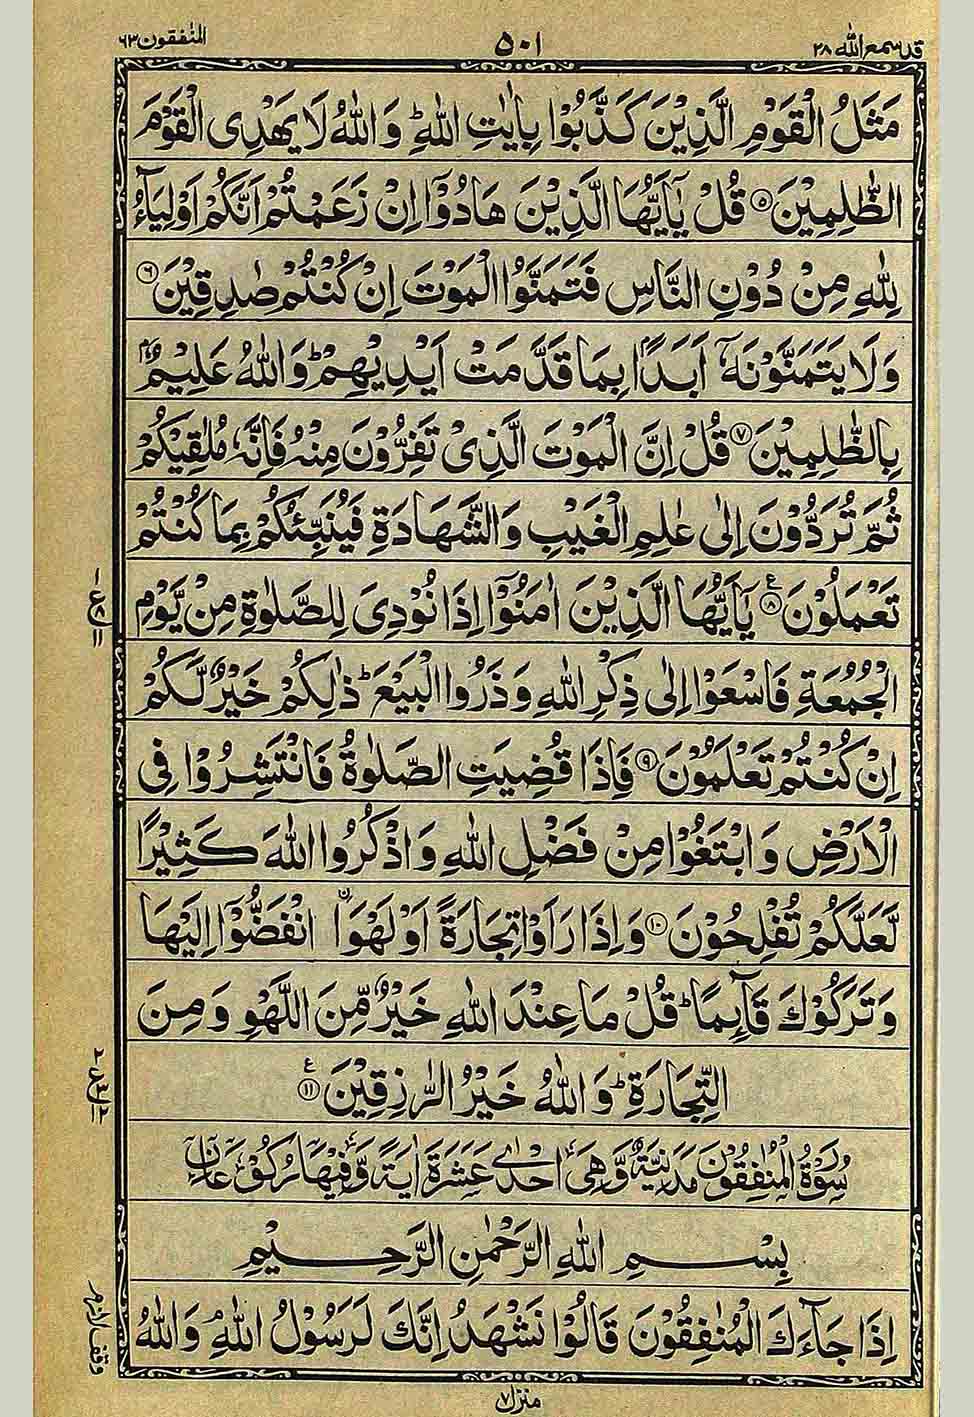 قد سمع الله ٢٨
٥٠١
المنٰفقون ٦٣
مَثَلُ الْقَوْمِ الَّذِیْنَ كَذَّبُوْا بِاٰیٰتِ اللّٰهِ ؕ وَ اللّٰهُ لَا یَهْدِی الْقَوْمَ
الظّٰلِمِیْنَ ۵ قُلْ یٰۤاَیُّهَا الَّذِیْنَ هَادُوْۤا اِنْ زَعَمْتُمْ اَنَّكُمْ اَوْلِیَآءُ
لِلّٰهِ مِنْ دُوْنِ النَّاسِ فَتَمَنَّوُا الْمَوْتَ اِنْ كُنْتُمْ صٰدِقِیْنَ ۶
وَ لَا یَتَمَنَّوْنَهٗۤ اَبَدًۢا بِمَا قَدَّمَتْ اَیْدِیْهِمْ ؕ وَ اللّٰهُ عَلِیْمٌۢ
بِالظّٰلِمِیْنَ ۷ قُلْ اِنَّ الْمَوْتَ الَّذِیْ تَفِرُّوْنَ مِنْهُ فَاِنَّهٗ مُلٰقِیْكُمْ
ثُمَّ تُرَدُّوْنَ اِلٰی عٰلِمِ الْغَیْبِ وَ الشَّهَادَةِ فَیُنَبِّئُكُمْ بِمَا كُنْتُمْ
تَعْمَلُوْنَ ۸ یٰۤاَیُّهَا الَّذِیْنَ اٰمَنُوْۤا اِذَا نُوْدِیَ لِلصَّلٰوةِ مِنْ یَّوْمِ
الْجُمُعَةِ فَاسْعَوْا اِلٰی ذِكْرِ اللّٰهِ وَ ذَرُوا الْبَیْعَ ؕ ذٰلِكُمْ خَیْرٌ لَّكُمْ
اِنْ كُنْتُمْ تَعْلَمُوْنَ ۹ فَاِذَا قُضِیَتِ الصَّلٰوةُ فَانْتَشِرُوْا فِی
الْاَرْضِ وَ ابْتَغُوْا مِنْ فَضْلِ اللّٰهِ وَ اذْكُرُوا اللّٰهَ كَثِیْرًا
لَّعَلَّكُمْ تُفْلِحُوْنَ ۱۰ وَ اِذَا رَاَوْا تِجَارَةً اَوْ لَهْوَا ﰳانْفَضُّوْۤا اِلَیْهَا
وَ تَرَكُوْكَ قَآىِٕمًا ؕ قُلْ مَا عِنْدَ اللّٰهِ خَیْرٌ مِّنَ اللَّهْوِ وَ مِنَ
التِّجَارَةِ ؕ وَ اللّٰهُ خَیْرُ الرّٰزِقِیْنَ ۱۱
سُوْرَةُ الْمُنٰفِقُوْنَ مَدَنِیَّةٌ وَّهِیَ اِحْدٰی عَشَرَةَ اٰیَةً وَّفِیْهَا رُكُوْعَانِ
بِسْمِ اللّٰهِ الرَّحْمٰنِ الرَّحِیْمِ
اِذَا جَآءَكَ الْمُنٰفِقُوْنَ قَالُوْا نَشْهَدُ اِنَّكَ لَرَسُوْلُ اللّٰهِ ۘ وَ اللّٰهُ
منزل ٧